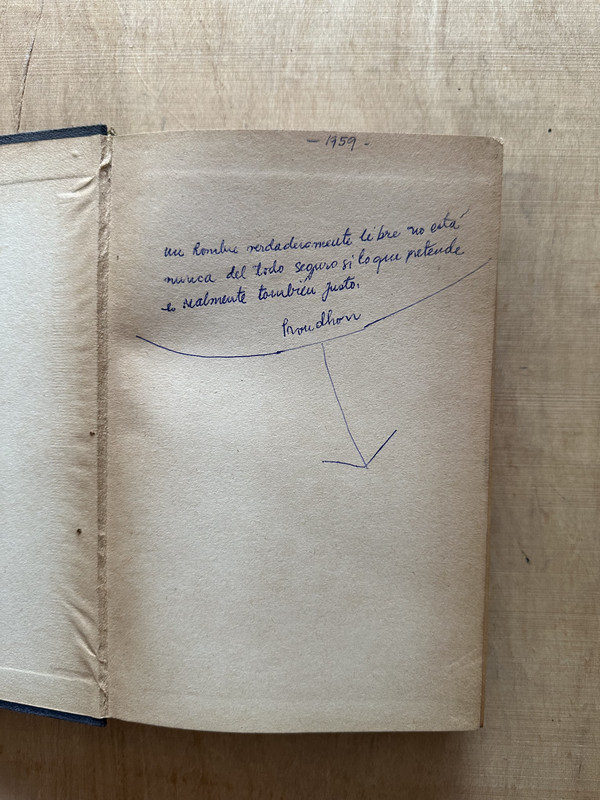 - 1959 -
un hombre verdaderamente libre no está
nunca del todo seguro si lo que pretende
es realmente también justo.
Proudhon